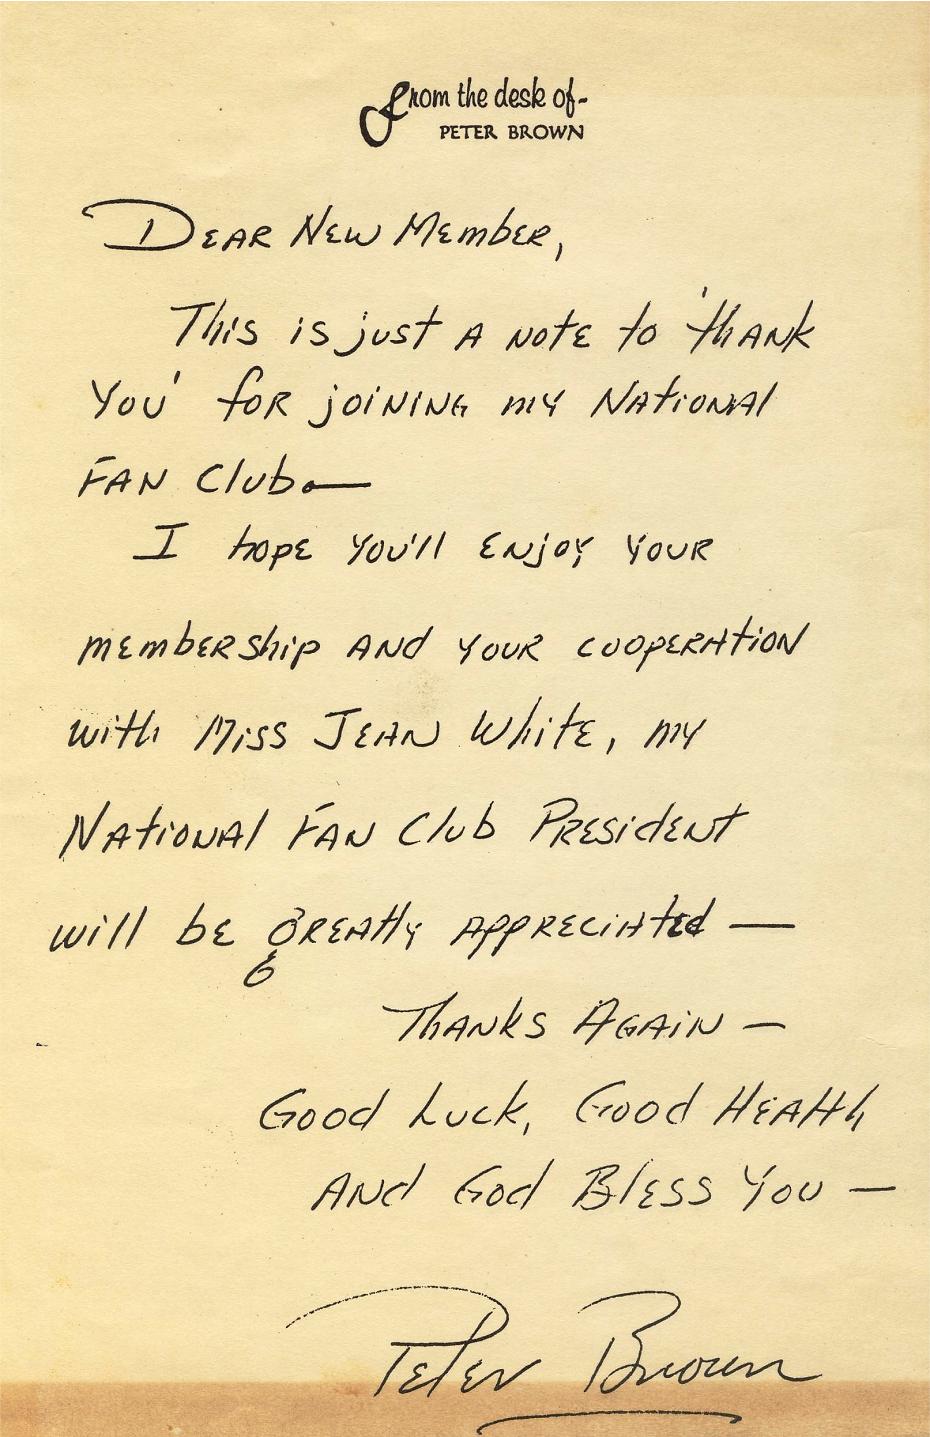 From the desk of-
PETER BROWN
DEAR NEW MEMBER,
This is just A NOTE to 'thANK
YOU' foR joiNiNG my NAtioNAl
FAN Club.—
I hopE YOU'll ENjoY YOUR
mEmbERship ANd YOUR cooPERAtioN
with Miss JEAN WhitE, my
NAtioNAl FAN Club PREsidENt
will bE gREAtly AppREciAtEd —
ThANKS AGAiN —
Good Luck, Good HEAlth
ANd God BlESS YOU —
Peter Brown